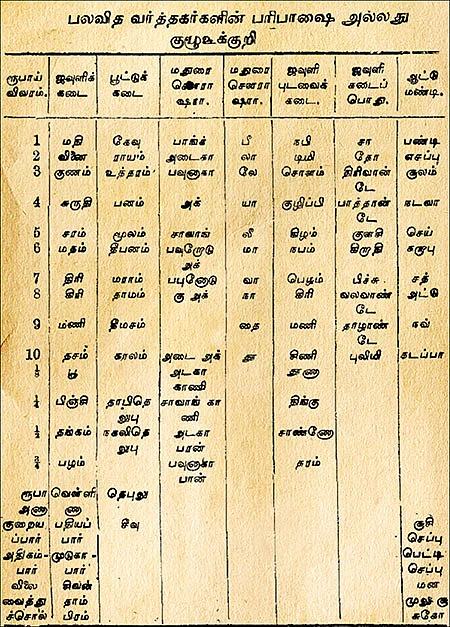 பலவித வர்த்தகர்களின் பரிபாஷை அல்லது
குழூஉக்குறி
ரூபாய் விவரம். ஜவுளிக் கடை பூட்டுக் கடை மதுரை சௌரா ஷரா. மதுரை சௌரா ஷரா. ஜவுளி புடவைக் கடை. ஜவுளி கடைப் பொது. ஆட்டு மண்டி.
1 மதி கேவு பாங்க் பீ நபி சா பண்டி
2 வினை ராயம் அடைகா லா டிமி தோ எசப்பு
3 குணம் உந்தரம் பவுனுகா லே சொனம் திரிவான் டே சூலம்
4 சுருதி பனம் அக் யா குழிப்பி பாத்தான் டே நடவா
5 சரம் மூலம் சாவாங் லீ கிழம் குனகி செய்
6 மதம் தீபனம் பவுறோடு அக் மா நபம் கிருதி சுகுபு
7 திரி மராம் பபுனோடு வா பெழம் பிச்சு சத்
8 கிரி தாமம் கு அக் நா கிரி வலவாண் டே அட்டு
9 மணி தீமசம் தை மணி தாழாண் டே நவ்
10 தசம் காலம் அடை அக் தூ கிணி புவியி கடப்பா
⅛ பூ அடகா காணி தூணு
¼ பிஞ்கி தாபிதெ றுபு சாவாங் கா ணி திங்கு
½ தங்கம் நகவிதெ றுபு அடகா பான் சாண்ணே
¾ பழம் பவுனுகா பான் தரம்
ரூபா வெள்ளி தெபுறு
அணா ண
குறைய பதியப் சிவு குசி
ப்பார் பார் செப்பு
அதிகம்- முடுகா- பெட்டி
பார் பார் செப்பு
வீலை சிவன் மன
வைத்து தாம் முலு கு
ச்சொல் பிரம் சுகோ